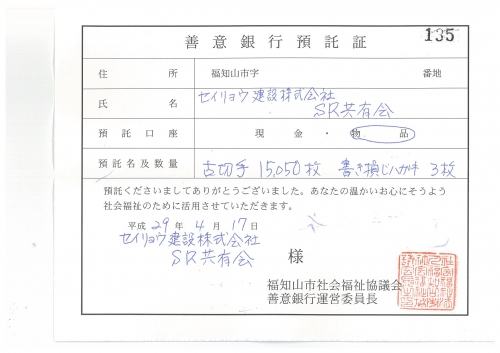 135
善意銀行預託証
住所 福知山市字 番地
氏名 セイリョウ建設株式会社
SR共有会
預託口座 現金・物品
預託名及数量 古切手 15,050枚 書き損じハガキ 3枚
預託くださいましてありがとうございました。あなたの温かいお心にそうよう
社会福祉のために活用させていただきます。
平成 29 年 4 月 17 日
セイリョウ建設株式会社
SR共有会 様
福知山市社会福祉協議会
善意銀行運営委員長